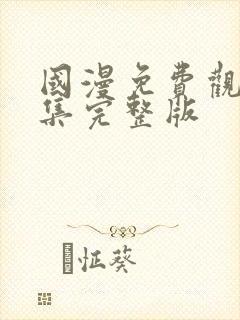 國漫免費觀
集完整版
怔葵